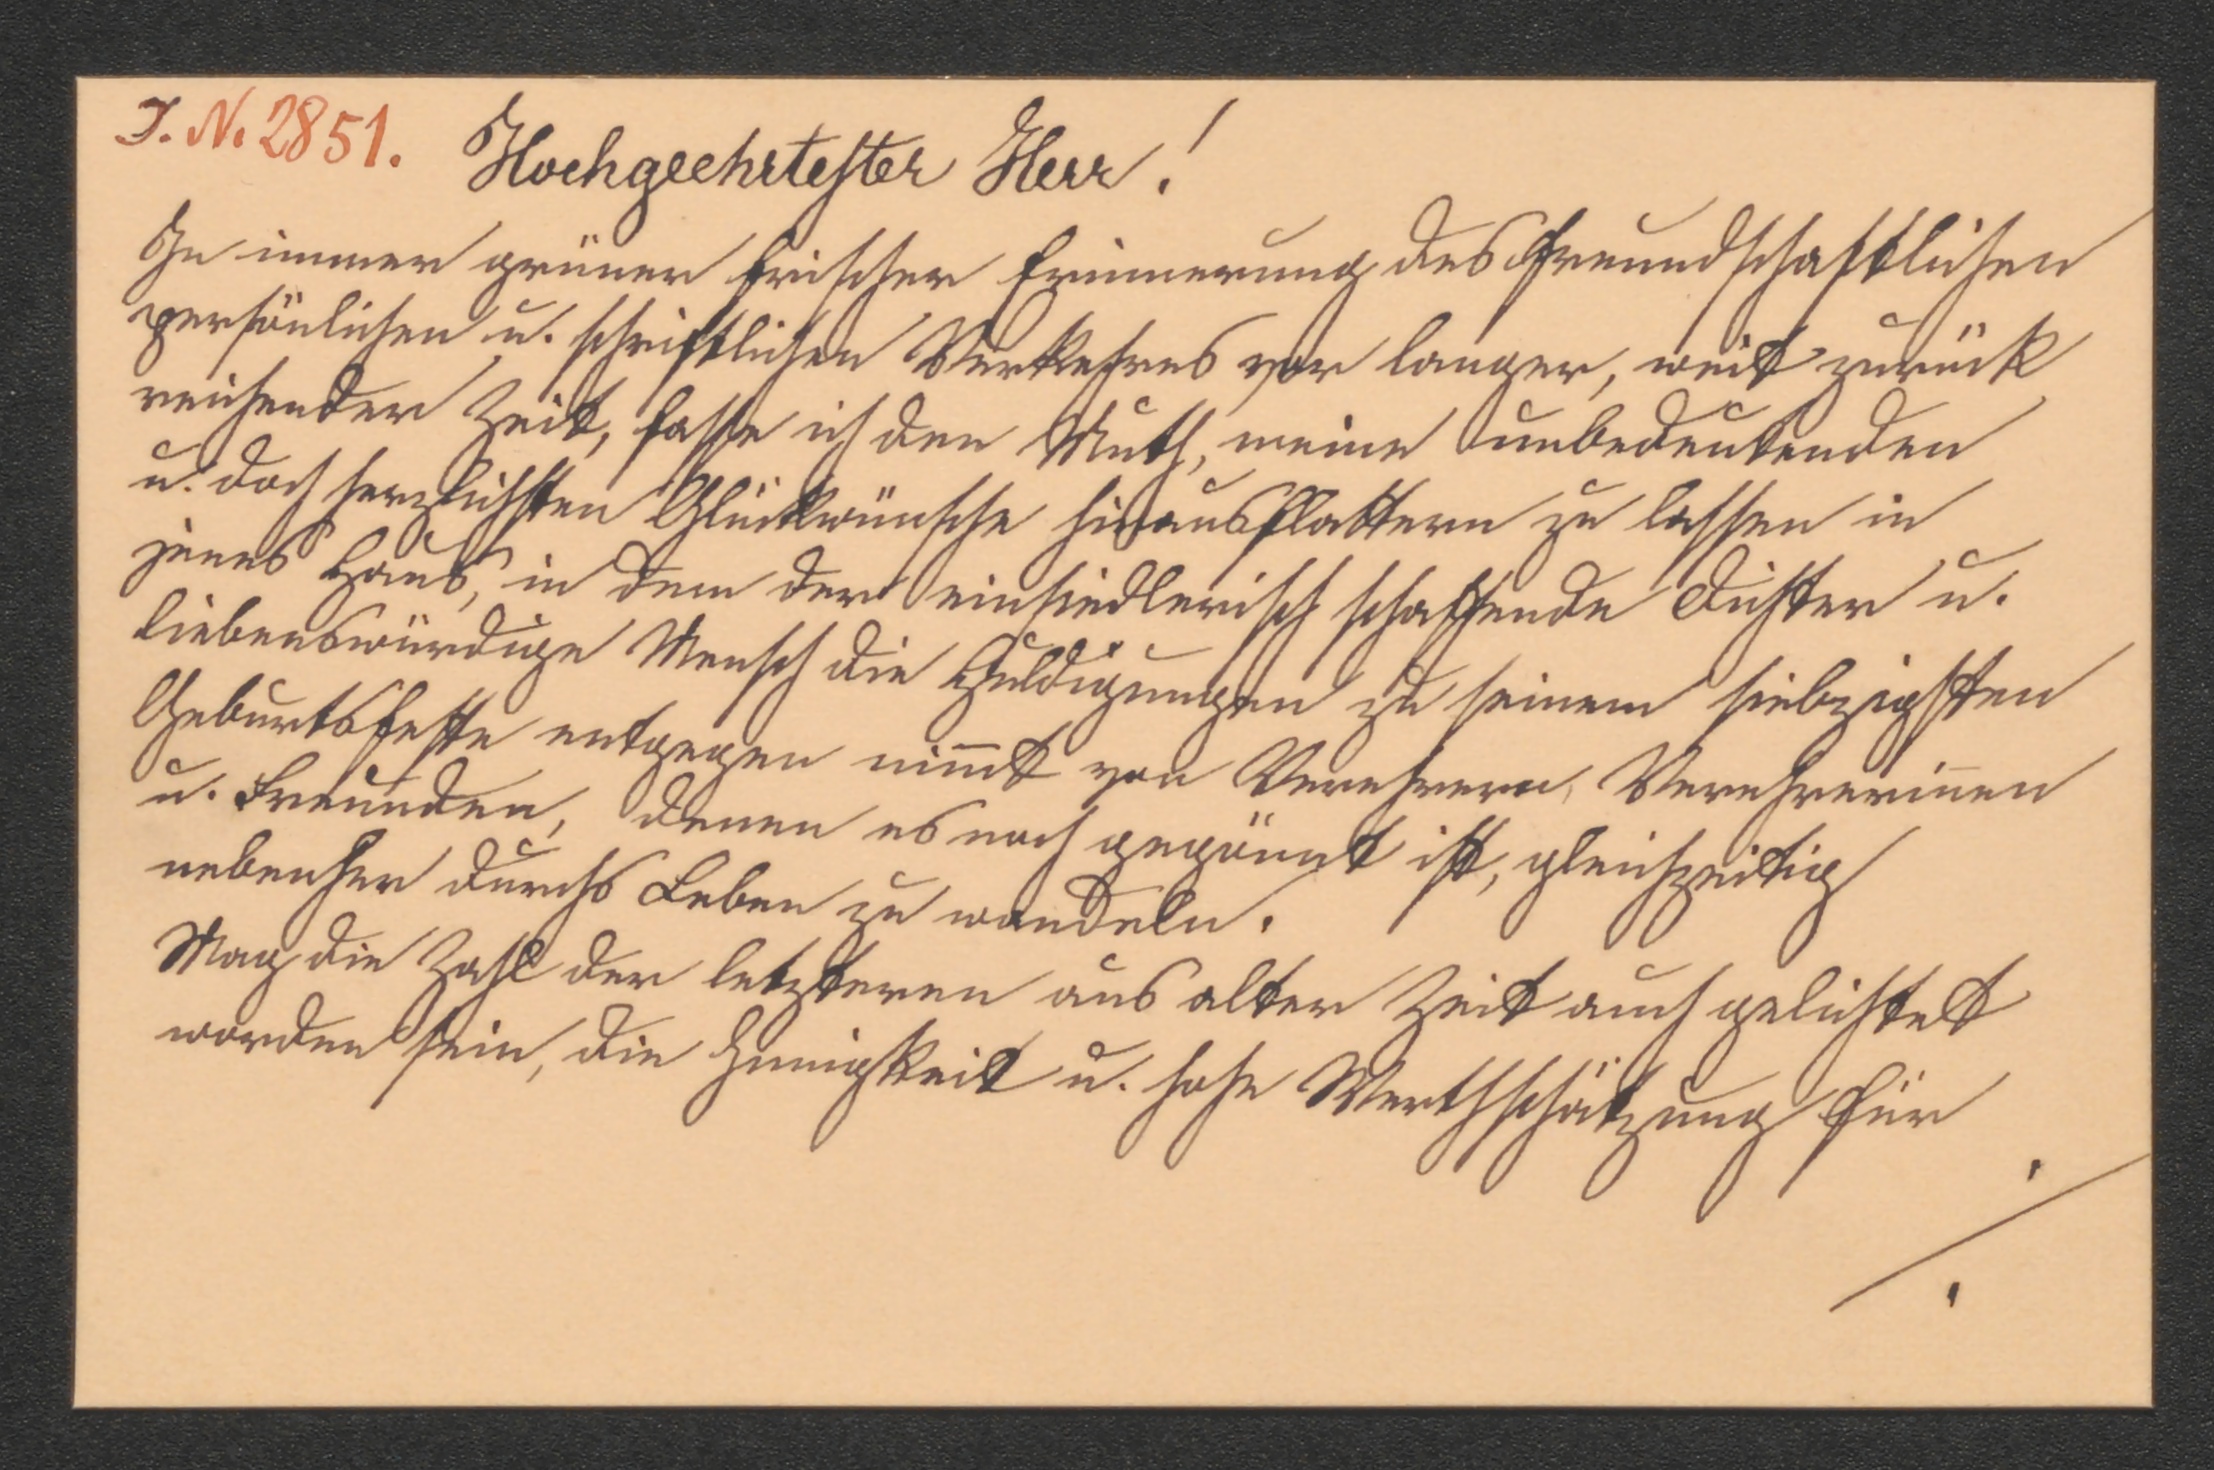 J. N. 2851.
Hochgeehrtester Herr!
In immer grüner frischer Erinnerung des freundschaftlichen
persönlichen u. schriftlichen Verkehres vor langer, weit zurück
reichender Zeit, fasse ich den Muth, meine unbedeutenden
u. doch herzlichsten Glückwünsche hinausflattern zu lassen in
jenes Haus, in dem der einsiedlerisch schaffende Dichter u.
liebenswürdige Mensch die Huldigungen zu seinem siebzigsten
Geburtsfeste entgegen nim̅t von Verehrern, Verehrerin̅en
u. Freunden, denen es noch gegönnt ist, gleichzeitig
nebenher durchs Leben zu wandeln.
Mag die Zahl der letzteren aus alter Zeit auch gelichtet
worden sein, die Innigkeit u. hohe Werthschätzung für
./.